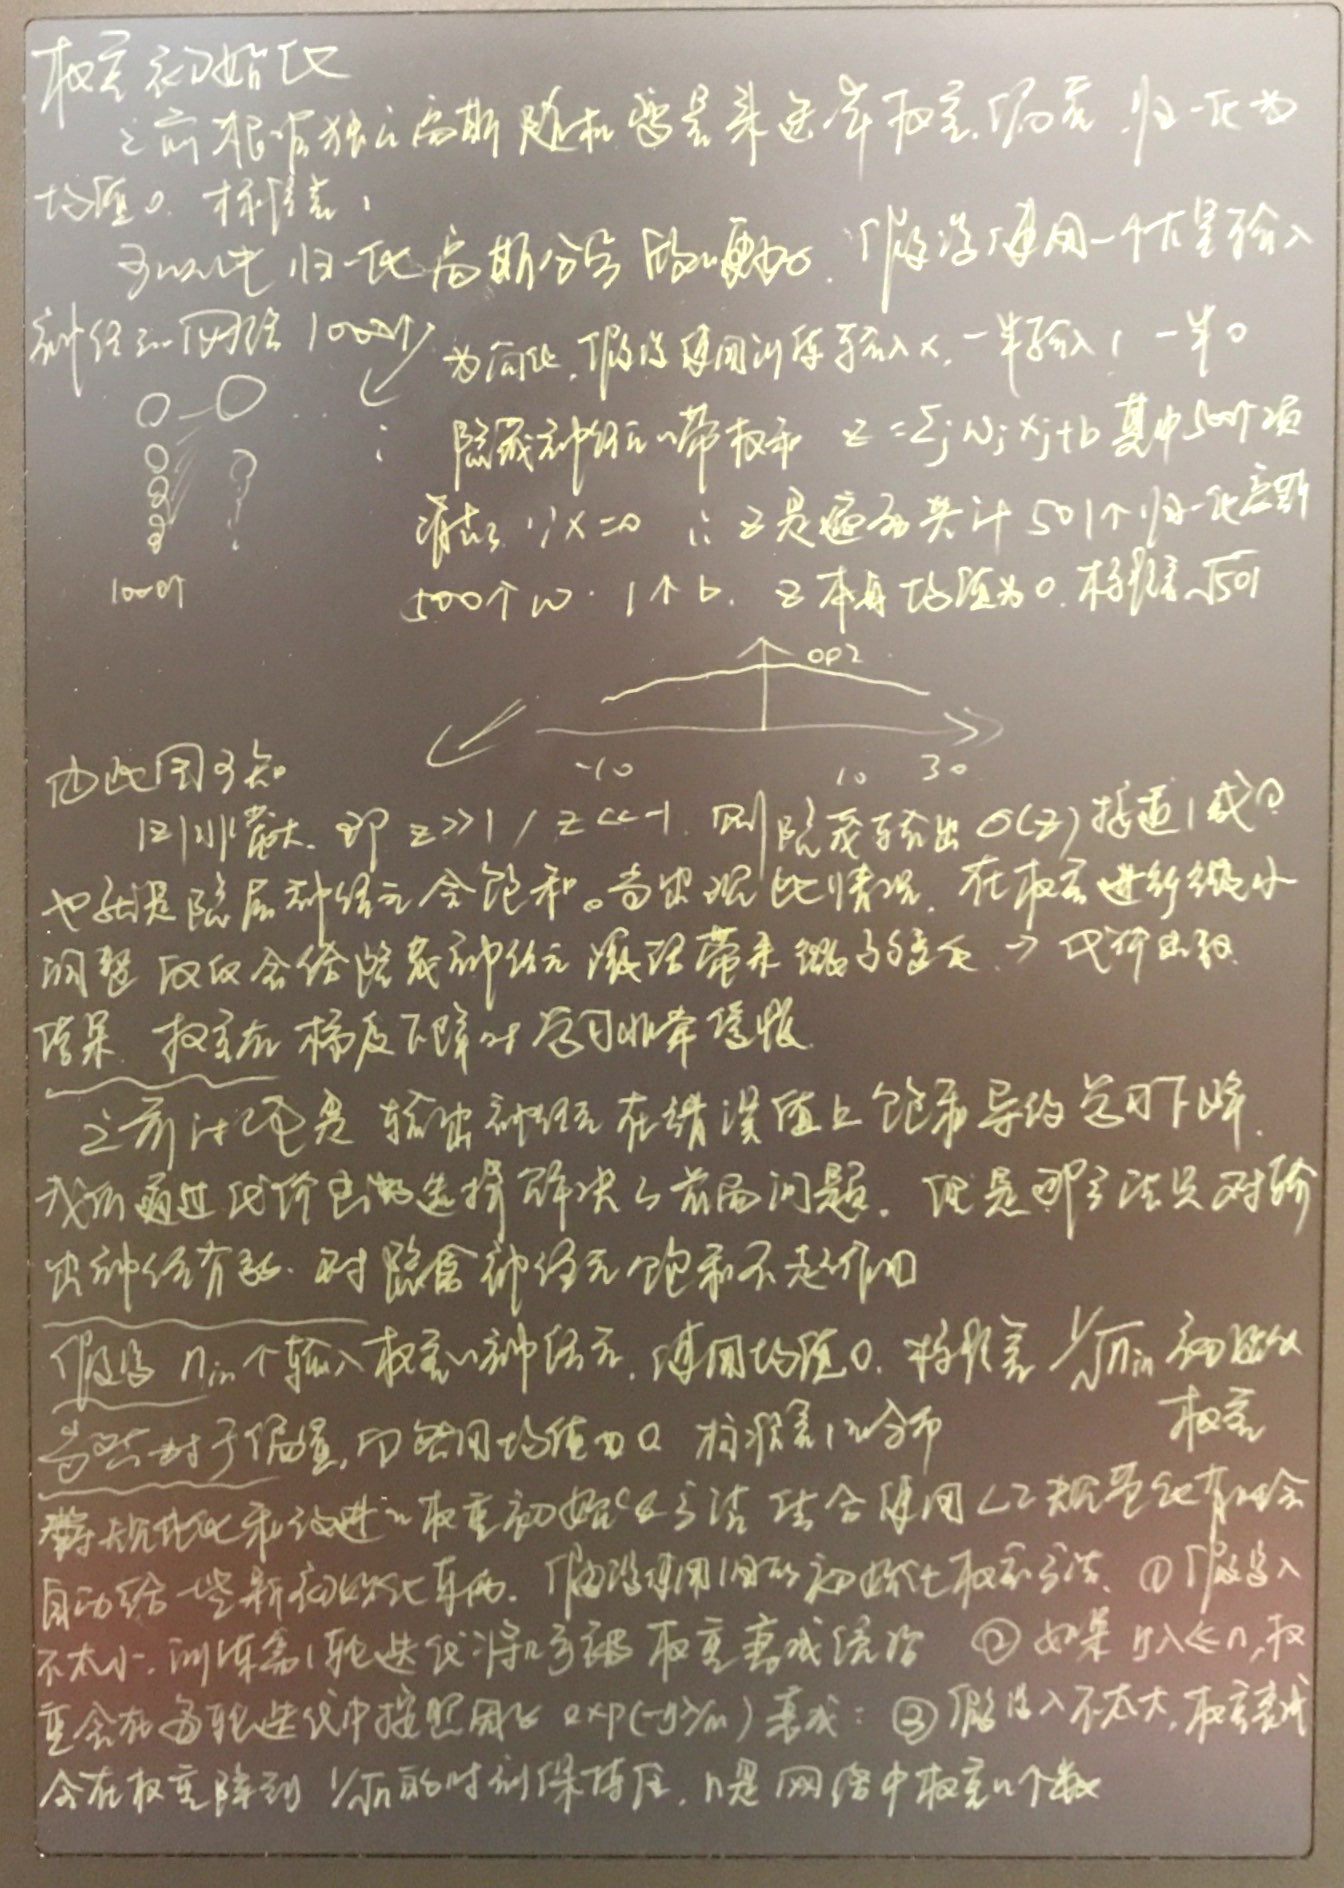 权重初始化
之前根据独立高斯随机变量来选择权重、偏置,归一化为
均值0 标准差1
归一化高斯分布 假设使用一个大量输入
神经元网络 1000个
为简化,假设使用训练输入x,一半输入1 一半0
隐藏神经元的带权和 z=Σj wj xj+b 其中500个项
消去了 ∵x=0 ∴ z是遍历共计501个归一化高斯
500个w 1个b. z本身均值为0.标准差√501
1000个
0.02
-10 10 30
由此图可知
|z|非常大.即 z>>1 / z<<-1. 则隐藏输出 σ(z) 接近1或0
也就是隐层神经元会饱和。当出现此情况,在权重进行微小
调整仅仅会给隐藏神经元激活带来微弱变化.→代价函数
结果 权重在梯度下降时学习非常缓慢
之前讨论是 输出神经元在错误值上饱和导致学习下降.
我们通过代价函数选择解决了前面问题.但是那方法只对输
出神经有效.对隐含神经元饱和不起作用
假设 nin个输入权重的神经元,使用均值0.标准差 1/√nin 初始化
权重
当然对于偏置,仍然用均值为0 标准差1的分布
规范化和改进的权重初始化方法 结合使用L2规范化有时会
自动给一些新初始化东西.假设使用旧的初始化权重方法. ①假设λ
不太小.训练第1轮迭代将会被权重衰减统治 ②如果ηλ<<n,权
重会在每轮迭代中按照因子exp(-ηλ/m)衰减: ③假设λ不太大,权重衰减
会在权重降到 1/√n的时刻保持住.n是网络中权重的个数